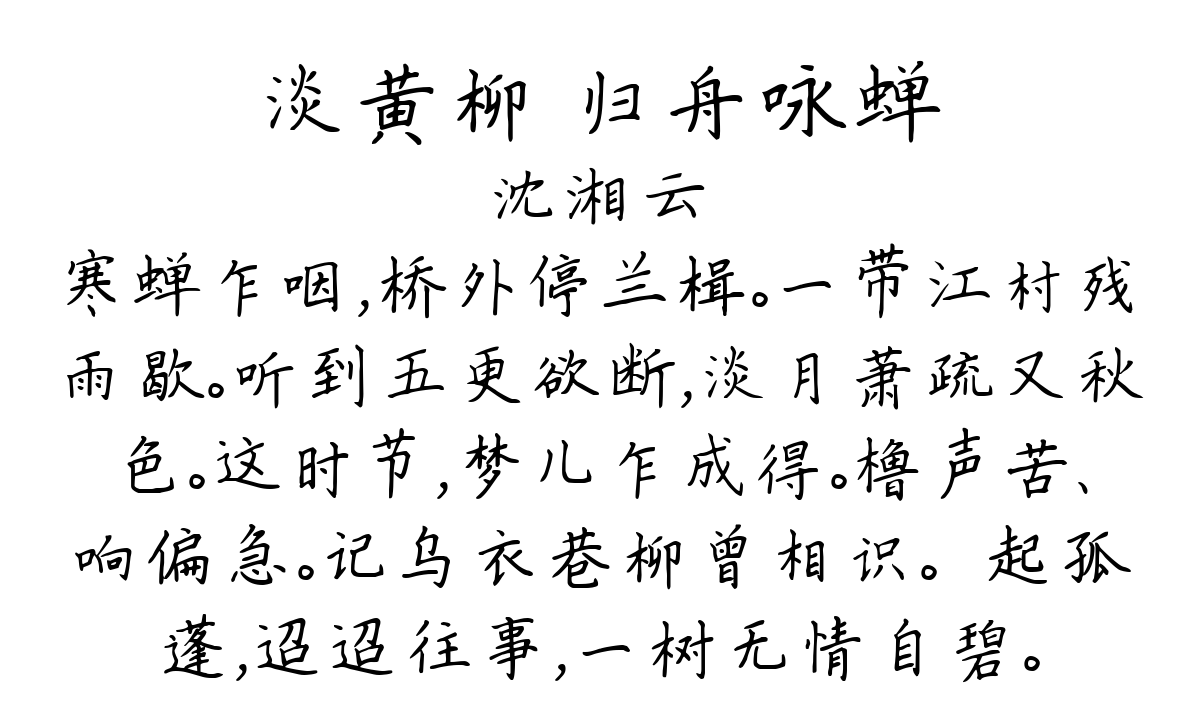 淡黄柳 归舟咏蝉
沈湘云
寒蝉乍咽,桥外停兰楫。一带江村残
雨歇。听到五更欲断,淡月萧疏又秋
色。这时节,梦儿乍成得。橹声苦、
响偏急。记乌衣巷柳曾相识。起孤
蓬,迢迢往事,一树无情自碧。